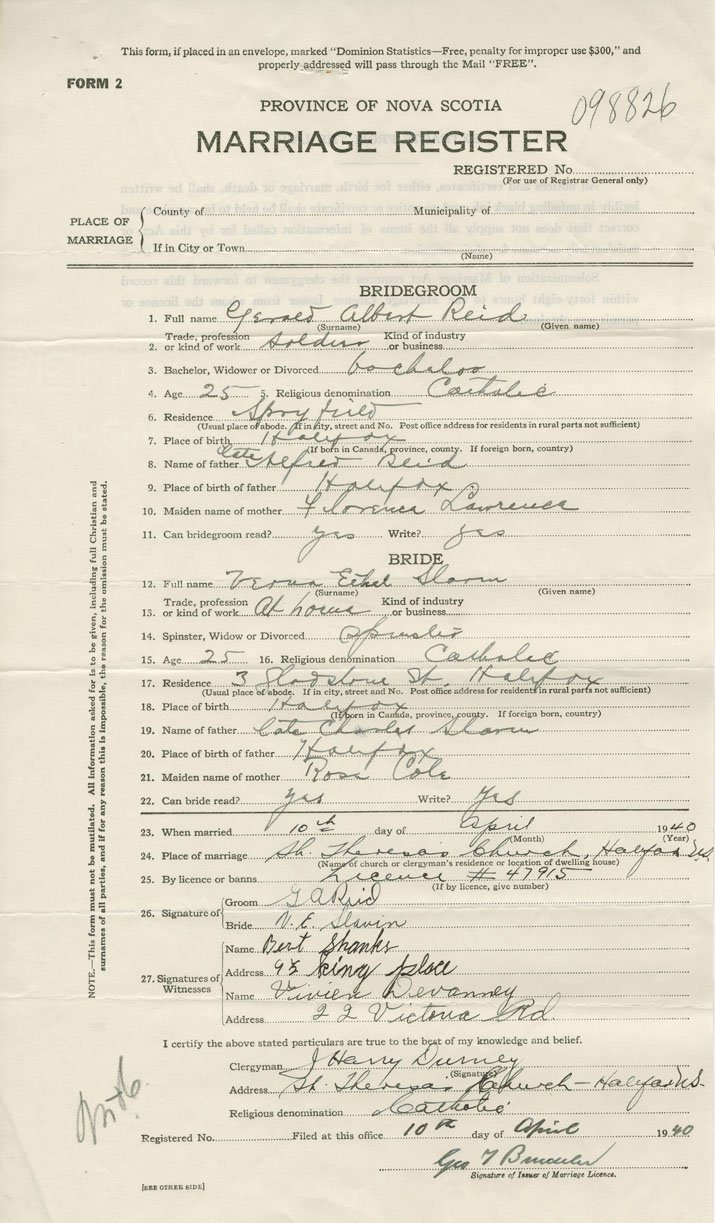 This form, if placed in an envelope, marked "Dominion Statistics—Free, penalty for improper use $300," and
properly addressed will pass through the Mail "FREE".
FORM 2
PROVINCE OF NOVA SCOTIA
098826
MARRIAGE REGISTER
REGISTERED No.
(For use of Registrar General only)
PLACE OF MARRIAGE
County of Municipality of
If in City or Town
(Name)
BRIDEGROOM
1. Full name Gerald Albert Reid
(Surname) (Given name)
2. Trade, profession or kind of work Soldier Kind of industry or business
3. Bachelor, Widower or Divorced bachelor
4. Age 25 5. Religious denomination Catholic
6. Residence Spryfield
(Usual place of abode. If in city, street and No. Post office address for residents in rural parts not sufficient)
7. Place of birth Halifax
(If born in Canada, province, county. If foreign born, country)
8. Name of father late Alfred Reid
9. Place of birth of father Halifax
10. Maiden name of mother Florence Lawrence
11. Can bridegroom read? yes Write? yes
BRIDE
12. Full name Verna Ethel Slavin
(Surname) (Given name)
13. Trade, profession or kind of work At home Kind of industry or business
14. Spinster, Widow or Divorced Spinster
15. Age 25 16. Religious denomination Catholic
17. Residence 3 Gladstone St. Halifax
(Usual place of abode. If in city, street and No. Post office address for residents in rural parts not sufficient)
18. Place of birth Halifax
(If born in Canada, province, county. If foreign born, country)
19. Name of father late Charles Slavin
20. Place of birth of father Halifax
21. Maiden name of mother Rose Cole
22. Can bride read? yes Write? Yes
23. When married 10th day of April 1940
(Month) (Year)
24. Place of marriage St. Theresa's Church, Halifax N.S.
(Name of church or clergyman's residence or location of dwelling house)
25. By licence or banns Licence # 47915
(If by licence, give number)
26. Signature of
Groom G A Reid
Bride V. E. Slavin
27. Signatures of Witnesses
Name Bert Shanks
Address king place
Name Vivien Devanney
Address 22 Victoria Rd.
I certify the above stated particulars are true to the best of my knowledge and belief.
Clergyman J Harry Durney
(Signature)
Address St. Theresa's Church — Halifax N.S.
Religious denomination Catholic
Registered No. Filed at this office 10th day of April 1940
Geo
Signature of Issuer of Marriage Licence.
[SEE OTHER SIDE]
NOTE.—This form must not be mutilated. All information asked for is to be given, including full Christian and
surnames of all parties, and if for any reason this is impossible, the reason for the omission must be stated.